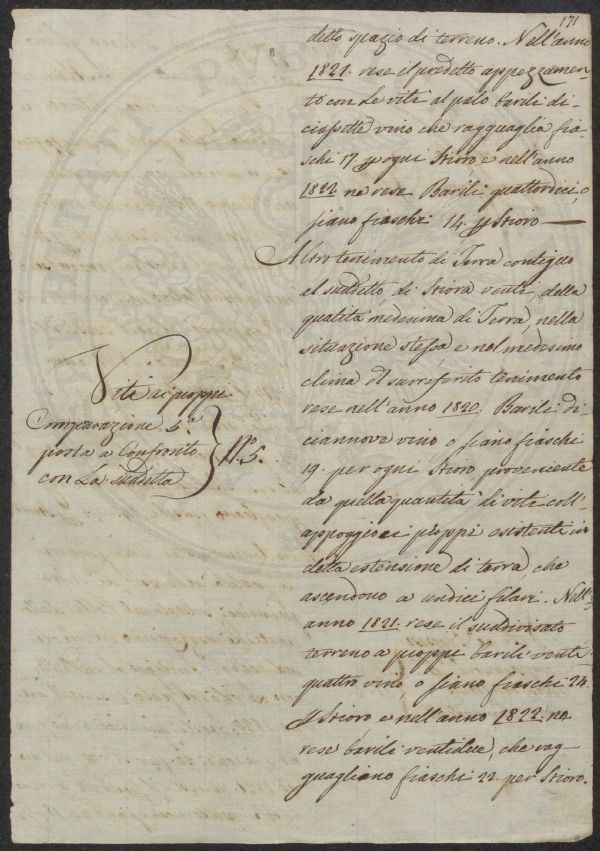 171
detto spazio di terreno. Nell'anno
1821. rese il predetto appezzamen
to con le viti al palo barili di-
ciassette vino che ragguaglia fia-
schi 17 p ogni Stioro, e nell'anno
1822 ne rese Barili quattordici, o
siano fiaschi 14. p Stioro
Altro tenimento di Terra contiguo
al suddetto, di Stiora venti, della
qualità medesima di Terra, nella
situazione stessa e nel medesimo
clima del surreferito tenimento
rese nell'anno 1820. Barili di
ciannove vino o siano fiaschi
19. per ogni Stioro, proveniente
da quella quantità di vite coll'
appoggio ai pioppi esistenti in
detta estensione di terra, che
ascendono a undici filari. Nell'
anno 1821. rese il suddivisato
terreno a pioppi barili venti
quattro vino o siano fiaschi 24.
p Stioro e nell'anno 1822. ne
rese barili ventidue, che rag
guagliano fiaschi 22. per Stioro.
Viti ai pioppi
Comparazione 5.a
posta a Confronto
con La suddetta
No. 5.